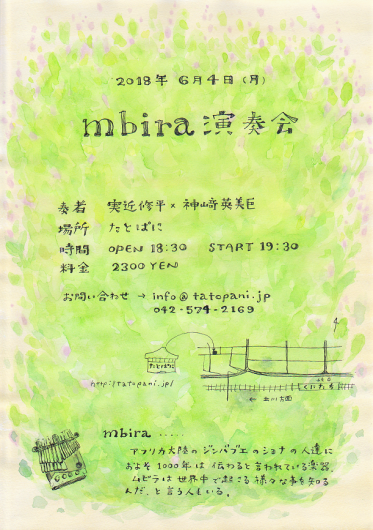 2018年 6月4日(月)
mbira 演奏会
奏者 実近修平 × 神﨑英美巨
場所 たとぱに
時間 OPEN 18:30 START 19:30
料金 2300 YEN
お問い合わせ → info@tatopani.jp
042-574-2169
たとぱに
http://tatopani.jp/
くにたち
← 立川方面
mbira .....
アフリカ大陸の ジンバブエ のショナ の人達に
およそ 1000年は 伝わると言われている楽器。
ムビラは 世界中で起こる 様々な事を知る
んだ、と言う人もいる。